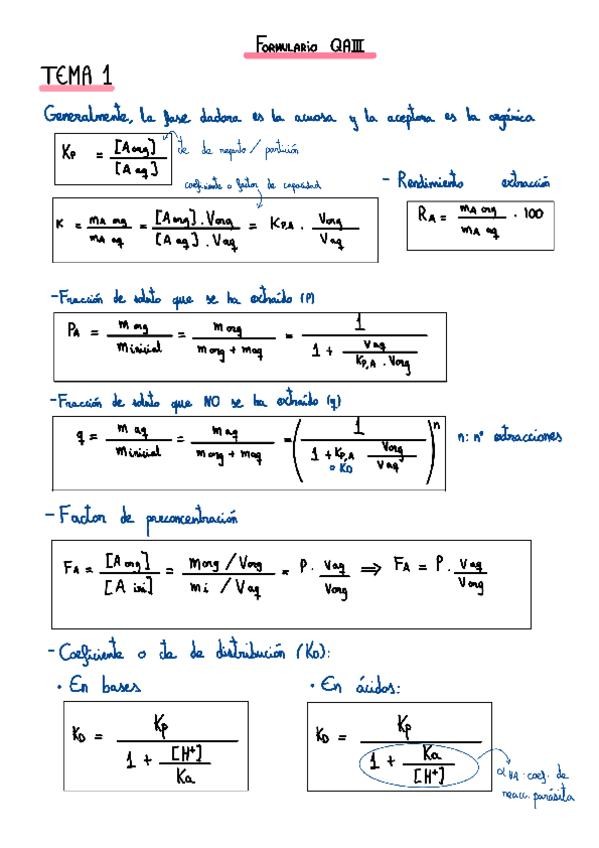 FORMULARIO QAIII
TEMA 1
Generalmente, la fase dadora es la acuosa y la aceptora es la orgánica
Kp = [A org] / [A aq] cte de reparto / partición
coeficiente o factor de capacidad
K = mA org / mA aq = [A org] · Vorg / [A aq] · Vaq = Kp,A · Vorg / Vaq
- Rendimiento extracción
RA = mA org / mA aq · 100
- Fracción de soluto que se ha extraído (P)
PA = m org / m inicial = m org / m org + m aq = 1 / 1 + Vaq / Kp,A · Vorg
- Fracción de soluto que NO se ha extraído (q)
q = m aq / m inicial = m aq / m org + m aq = (1 / 1 + Kp,A Vorg / Vaq)^n n: nº extracciones
o KD
- Factor de preconcentración
FA = [A org] / [A ini] = m org / Vorg / mi / Vaq = P · Vaq / Vorg ⇒ FA = P · Vaq / Vorg
- Coeficiente o cte de distribución (KD):
· En bases
KD = Kp / 1 + [H+] / Ka
· En ácidos:
KD = Kp / 1 + Ka / [H+]
αHA: coef. de
reacc. parásita